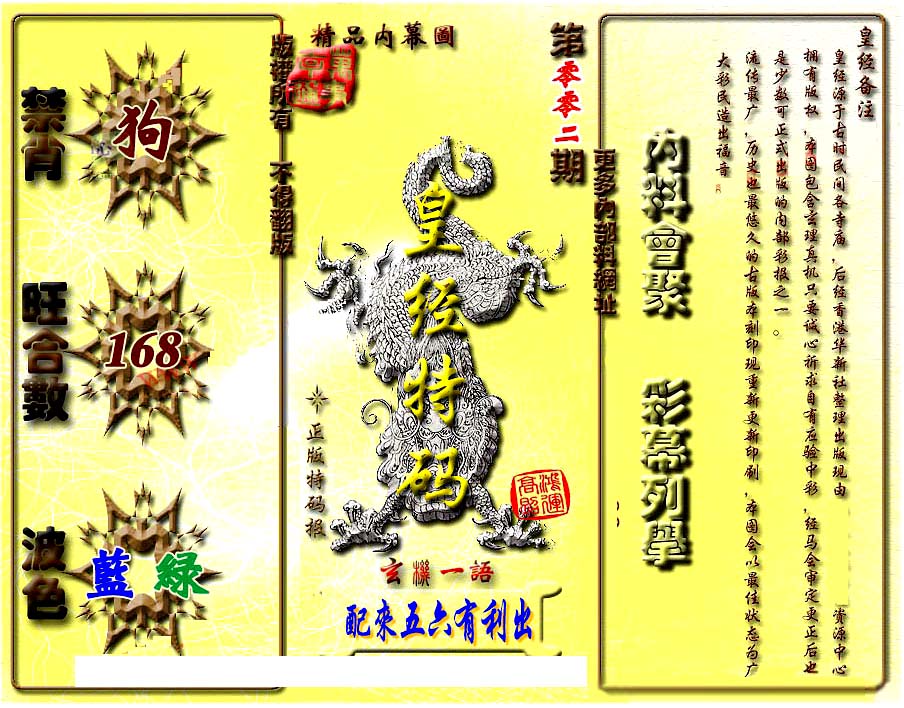 精品内幕圖
第零零二期
版權所有 不得翻版
更多内部料網址
禁肖
狗
旺合數
168
波色
藍 綠
皇经特码
正版特码报
鸿運高照
玄機一語
配來五六有利出
内料會聚 彩幕列舉
皇经备注
皇经源于古时民间各寺庙,后经香港华新社整理出版现由 资源中心
拥有版权,本图包含玄理真机只要诚心祈求自有应验中彩,经马会审定更正后也
是少数可正式出版的内部彩报之一。
流传最广,历史也最悠久的古版本刻印现重新更新印刷,本图会以最佳状态为广
大彩民造出福音